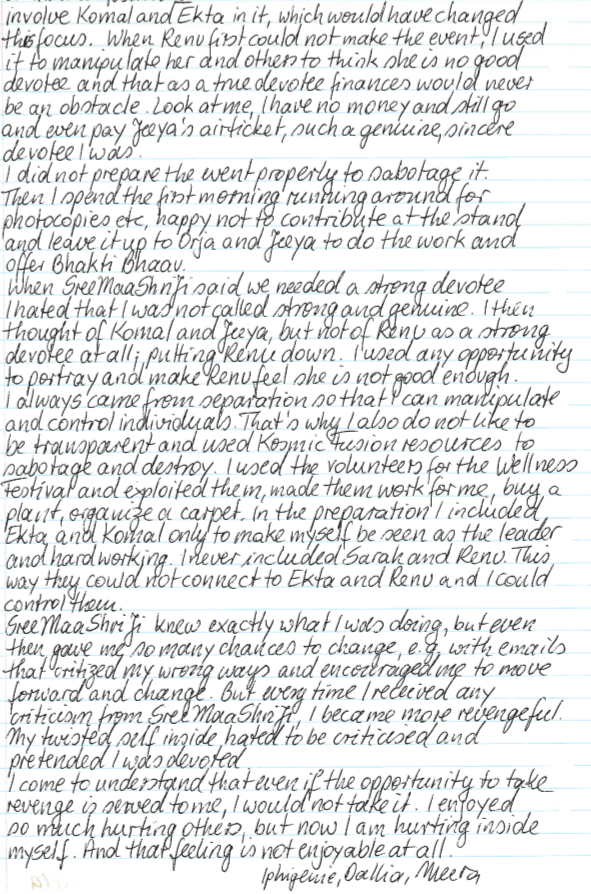 involve Komal and Ekta in it, which would have changed
the focus. When Renu first could not make the event, I used
it to manipulate her and others to think she is no good
devotee and that as a true devotee finances would never
be an obstacle. Look at me, I have no money and still go
and even pay Jeeya's airticket, such a genuine, sincere
devotee I was.
I did not prepare the event properly to sabotage it.
Then I spend the first morning running around for
photocopies etc, happy not to contribute at the stand
and leave it up to Orja and Jeeya to do the work and
offer Bhakti Bhaav.
When SreeMaaShriJi said we needed a strong devotee
I hated that I was not called strong and genuine. I then
thought of Komal and Jeeya, but not of Renu as a strong
devotee at all; putting Renu down. I used any opportunity
to portray and make Renu feel she is not good enough.
I always came from separation so that I can manipulate
and control individuals. That's why I also do not like to
be transparent and used Kosmic Fusion resources to
sabotage and destroy. I used the volunteers for the Wellness
Festival and exploited them, made them work for me, buy a
plant, organize a carpet. In the preparation I included
Ekta and Komal only to make myself be seen as the leader
and hardworking. I never included Sarah and Renu. This
way they could not connect to Ekta and Renu and I could
control them.
SreeMaaShriJi knew exactly what I was doing, but even
then gave me so many chances to change, e.g. with emails
that critized my wrong ways and encouraged me to move
forward and change. But every time I received any
criticism from SreeMaaShriJi, I became more revengeful.
My twisted self inside hated to be criticised and
pretended I was devoted
I come to understand that even if the opportunity to take
revenge is served to me, I would not take it. I enjoyed
so much hurting others, but now I am hurting inside
myself. And that feeling is not enjoyable at all.
Iphigenie, Dallia, Meera